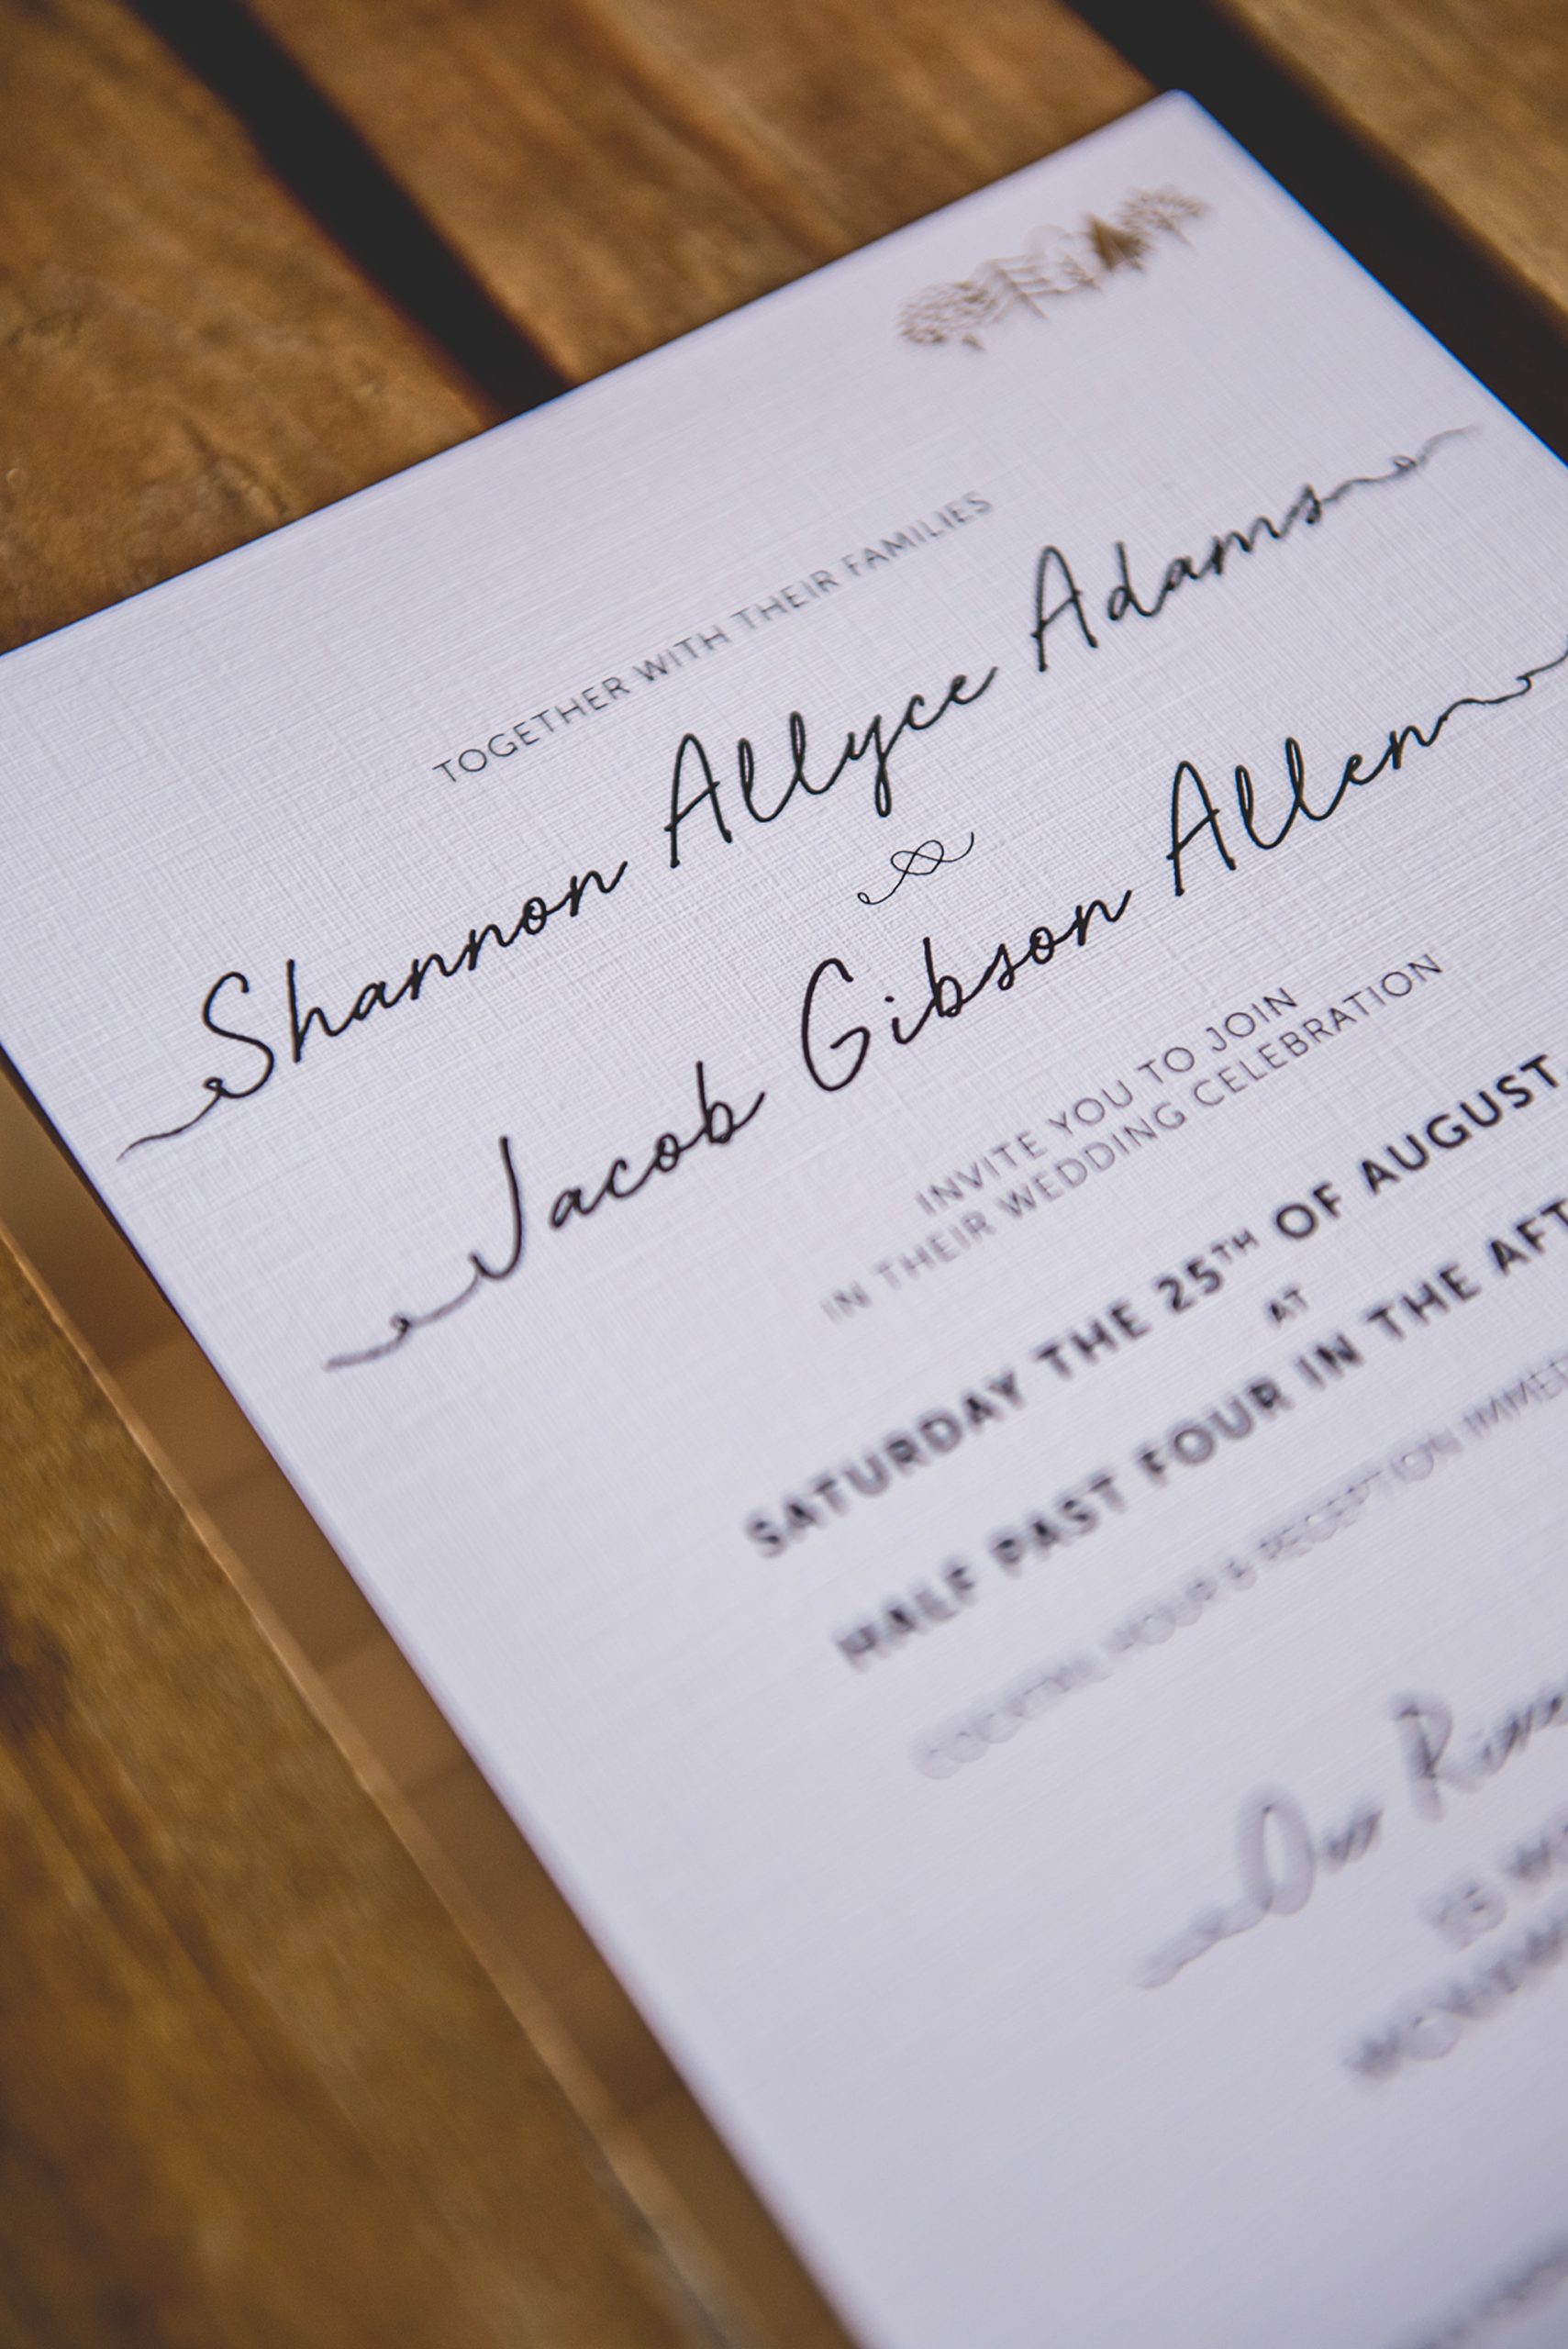 TOGETHER WITH THEIR FAMILIES
Shannon Allyce Adams
Jacob Gibson Allen
INVITE YOU TO JOIN
IN THEIR WEDDING CELEBRATION
SATURDAY THE 25TH OF AUGUST,
AT
HALF PAST FOUR IN THE AFT
COCKTAIL HOUR & RECEPTION IMMED